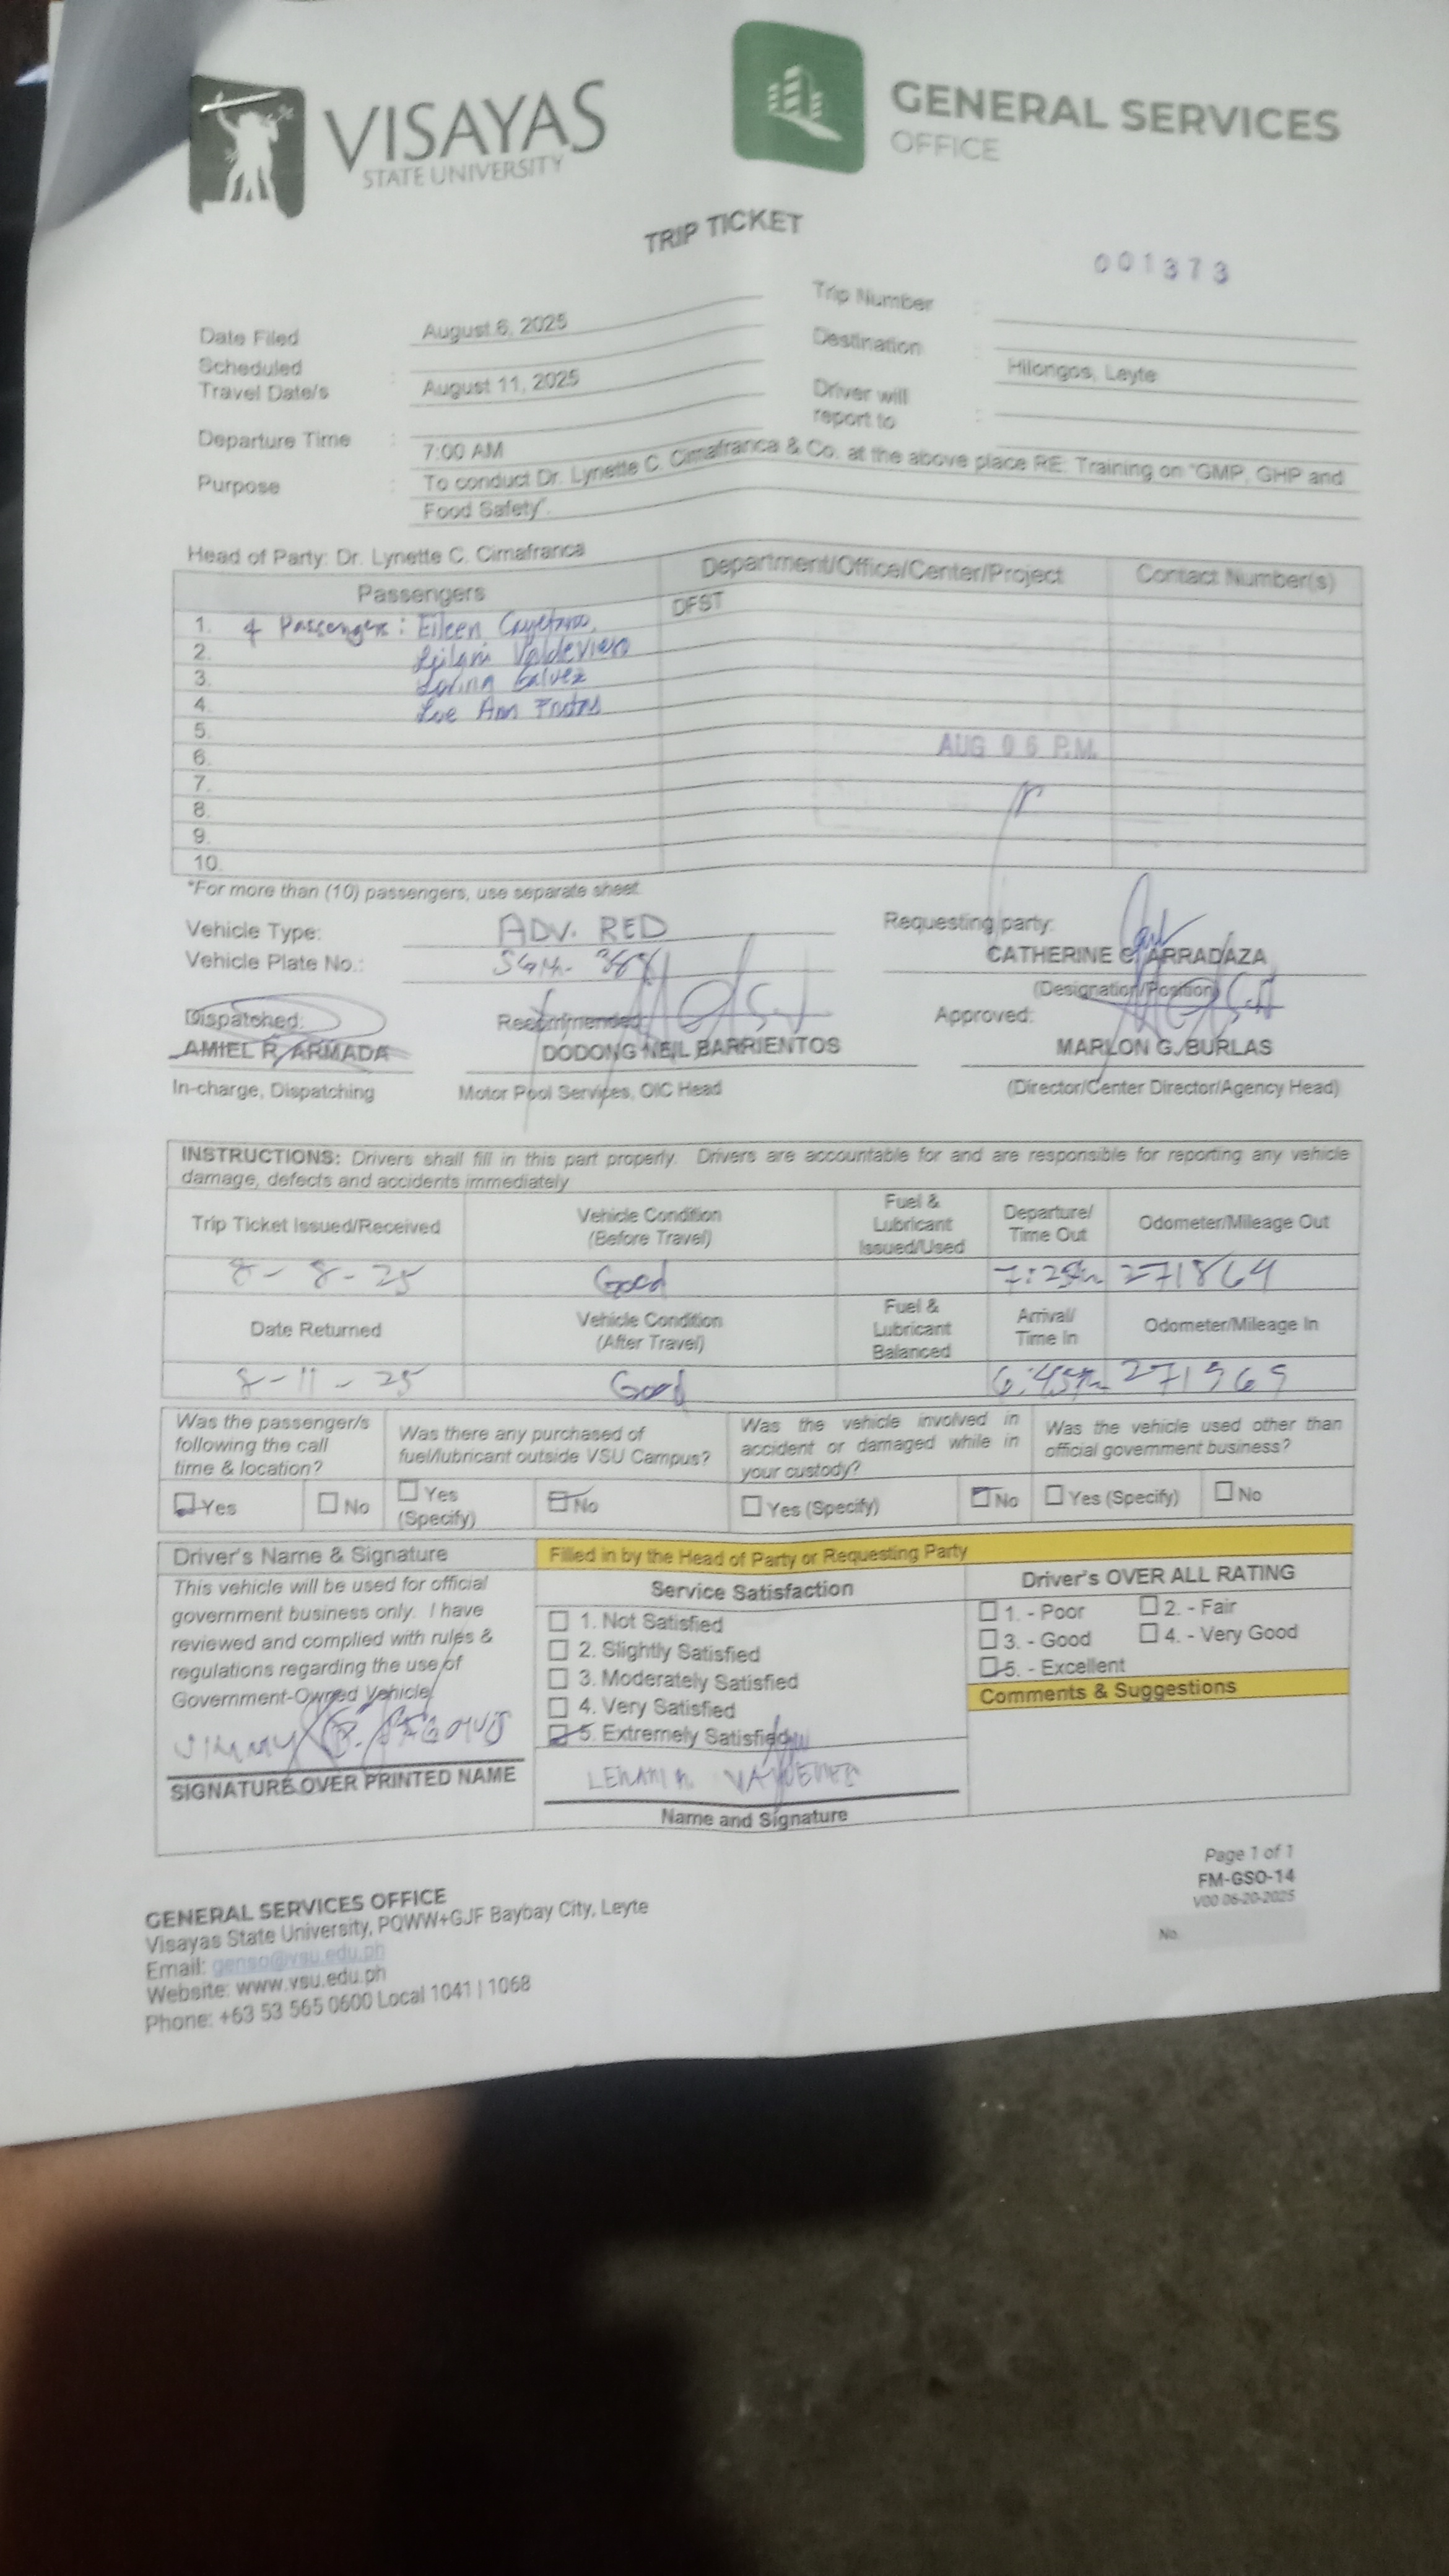 VISAYAS
STATE UNIVERSITY
GENERAL SERVICES
OFFICE
TRIP TICKET
001373
Date Filed August 6, 2025
Trip Number :
Scheduled
Travel Date/s : August 11, 2025
Destination : Hilongos, Leyte
Departure Time : 7:00 AM
Driver will
report to :
Purpose : To conduct Dr. Lynette C. Cimafranca & Co. at the above place RE: Training on "GMP, GHP and
Food Safety".
Head of Party: Dr. Lynette C. Cimafranca
Passengers Department/Office/Center/Project Contact Number(s)
1. 4 Passengers: Eileen Cayetano, DFST
2. Leilani Valdevieso
3. Lorina Galvez
4. Lue Ann
5.
6. AUG 06 P.M.
7.
8.
9.
10.
*For more than (10) passengers, use separate sheet.
Vehicle Type: ADV. RED
Requesting party:
Vehicle Plate No.:
CATHERINE C. ARRADAZA
(Designation/Position)
Dispatched: Recommended: Approved:
AMIEL R. ARMADA DODONG NEIL BARRIENTOS MARLON G. BURLAS
In-charge, Dispatching Motor Pool Services, OIC Head (Director/Center Director/Agency Head)
INSTRUCTIONS: Drivers shall fill in this part properly. Drivers are accountable for and are responsible for reporting any vehicle
damage, defects and accidents immediately
Trip Ticket Issued/Received Vehicle Condition (Before Travel) Fuel & Lubricant Issued/Used Departure/ Time Out Odometer/Mileage Out
8-8-25 Good 271864
Date Returned Vehicle Condition (After Travel) Fuel & Lubricant Balanced Arrival/ Time In Odometer/Mileage In
8-11-25 Good 271969
Was the passenger/s following the call time & location?
Was there any purchased of fuel/lubricant outside VSU Campus?
Was the vehicle involved in accident or damaged while in your custody?
Was the vehicle used other than official government business?
Yes No Yes (Specify) No Yes (Specify) No Yes (Specify) No
Driver's Name & Signature
Filled in by the Head of Party or Requesting Party
This vehicle will be used for official
government business only. I have
reviewed and complied with rules &
regulations regarding the use of
Government-Owned Vehicle.
SIGNATURE OVER PRINTED NAME
Service Satisfaction
1. Not Satisfied
2. Slightly Satisfied
3. Moderately Satisfied
4. Very Satisfied
5. Extremely Satisfied
Name and Signature
Driver's OVER ALL RATING
1. - Poor 2. - Fair
3. - Good 4. - Very Good
5. - Excellent
Comments & Suggestions
Page 1 of 1
FM-GSO-14
V00 06-20-2025
No.
GENERAL SERVICES OFFICE
Visayas State University, PQWW+GJF Baybay City, Leyte
Email: genso@vsu.edu.ph
Website: www.vsu.edu.ph
Phone: +63 53 565 0600 Local 1041 | 1068